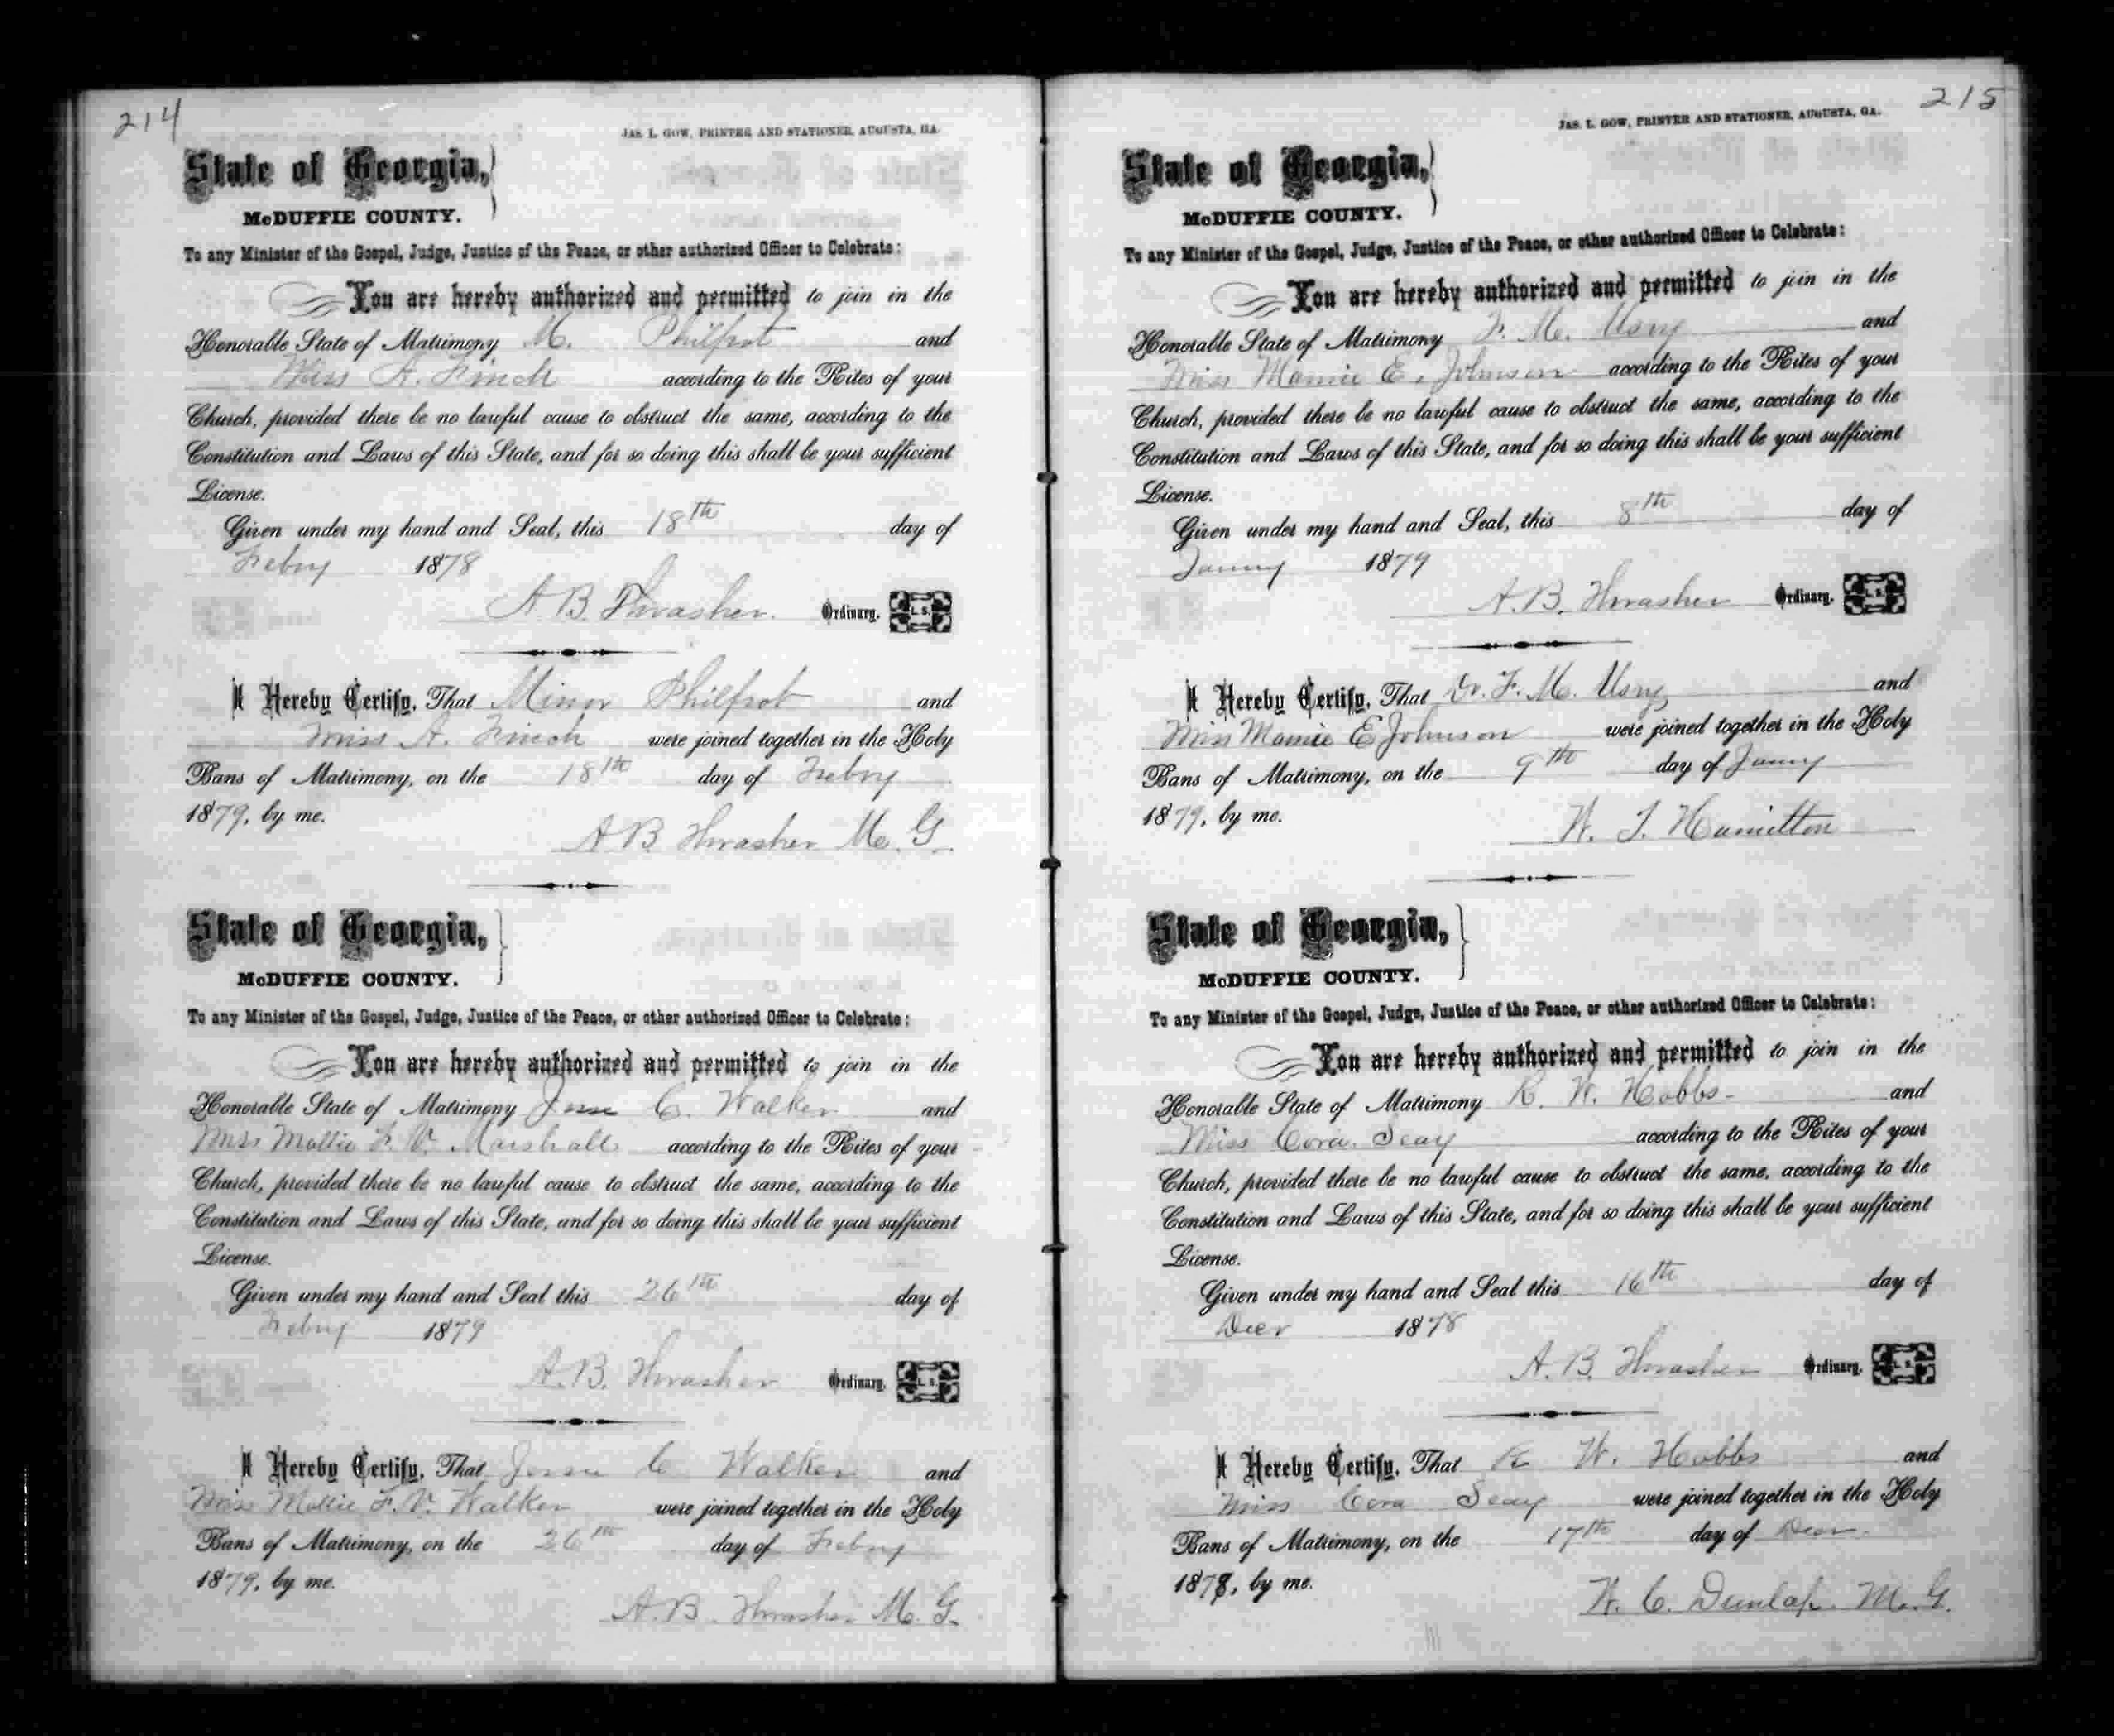 214
JAS. L. GOW, PRINTER AND STATIONER, AUGUSTA, GA.
State of Georgia,
McDUFFIE COUNTY.
To any Minister of the Gospel, Judge, Justice of the Peace, or other authorized Officer to Celebrate:
You are hereby authorized and permitted to join in the
Honorable State of Matrimony M. Philpot and
Miss A. Finch according to the Rites of your
Church, provided there be no lawful cause to obstruct the same, according to the
Constitution and Laws of this State, and for so doing this shall be your sufficient
License.
Given under my hand and Seal, this 18th day of
Febry 1878
A. B. Thrasher. Ordinary. L. S.
I Hereby Certify, That Minor Philpot and
Miss A. Finch were joined together in the Holy
Bans of Matrimony, on the 18th day of Febry
1879, by me.
A B Thrasher M. G.
State of Georgia,
McDUFFIE COUNTY.
To any Minister of the Gospel, Judge, Justice of the Peace, or other authorized Officer to Celebrate:
You are hereby authorized and permitted to join in the
Honorable State of Matrimony Jesse C. Walker and
Miss Mollie F. V. Marshall according to the Rites of your
Church, provided there be no lawful cause to obstruct the same, according to the
Constitution and Laws of this State, and for so doing this shall be your sufficient
License.
Given under my hand and Seal this 26th day of
Febry 1879
A. B. Thrasher Ordinary. L. S.
I Hereby Certify, That Jesse C Walker and
Miss Mollie F. V. Walker were joined together in the Holy
Bans of Matrimony, on the 26th day of Febry
1879, by me.
A. B. Thrasher M. G.
215
JAS. L. GOW, PRINTER AND STATIONER, AUGUSTA, GA.
State of Georgia,
McDUFFIE COUNTY.
To any Minister of the Gospel, Judge, Justice of the Peace, or other authorized Officer to Celebrate:
You are hereby authorized and permitted to join in the
Honorable State of Matrimony F. M. Usry and
Miss Mamie E. Johnson according to the Rites of your
Church, provided there be no lawful cause to obstruct the same, according to the
Constitution and Laws of this State, and for so doing this shall be your sufficient
License.
Given under my hand and Seal, this 8th day of
Janny 1879
A. B. Thrasher Ordinary. L. S.
I Hereby Certify, That Dr. F. M. Usry and
Miss Mamie E Johnson were joined together in the Holy
Bans of Matrimony, on the 9th day of Janny
1879, by me.
W. T. Hamilton
State of Georgia,
McDUFFIE COUNTY.
To any Minister of the Gospel, Judge, Justice of the Peace, or other authorized Officer to Celebrate:
You are hereby authorized and permitted to join in the
Honorable State of Matrimony R. W. Hobbs and
Miss Cora Seay according to the Rites of your
Church, provided there be no lawful cause to obstruct the same, according to the
Constitution and Laws of this State, and for so doing this shall be your sufficient
License.
Given under my hand and Seal this 16th day of
Decr 1878
A. B. Thrasher Ordinary. L. S.
I Hereby Certify, That R W. Hobbs and
Miss Cora Seay were joined together in the Holy
Bans of Matrimony, on the 17th day of Decr.
1878, by me.
W. C. Dunlap. M. G.